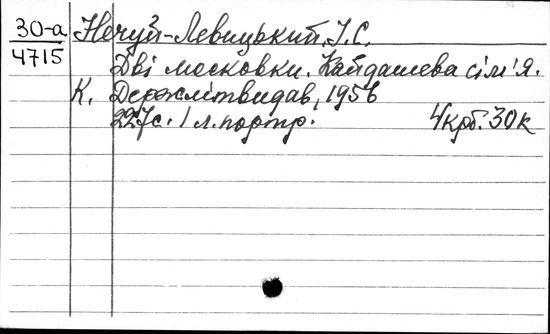 30-а Нечуй-Левицький. І.С.
4715
Дві московки. Кайдашева сім'я.
К. Держлітвидав, 1956
227с. 1 л. портр. 4крб. 30к